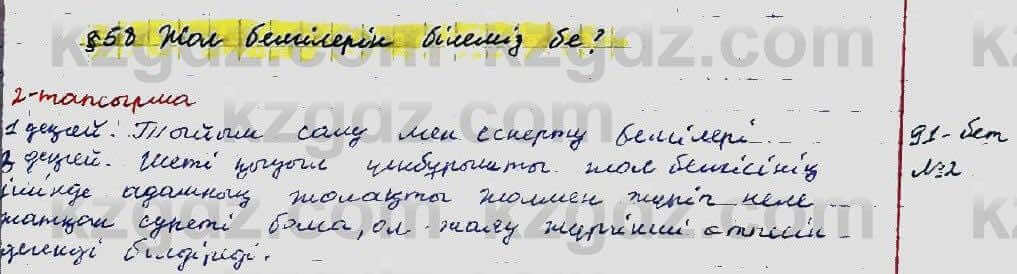 §58 Жол белгілерін білеміз бе?
2-тапсырма
1 деңгей. Тыйым салу мен ескерту белгілері
2 деңгей. Шеті қызыл үшбұрышты жол белгісінің
ішінде адамның жолақты жолмен жүріп келе
жатқан суреті болса, ол жаяу жүргінші өтетін
дегенді білдіреді.
91-бет
№2
kzgdz.com kzgdz.com kzgdz.com